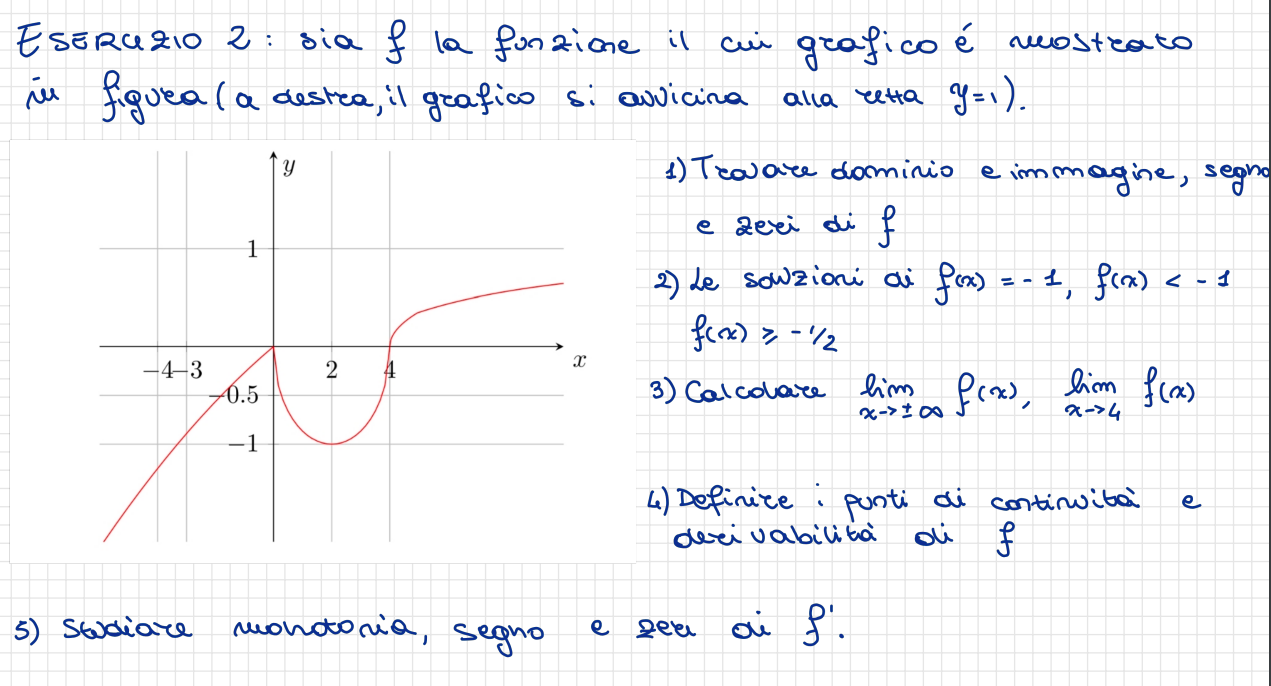 ESERCIZIO 2: sia f la funzione il cui grafico é mostrato
in figura (a destra, il grafico si avvicina alla retta y=1).
y
1
-4 -3
2
4
x
-0.5
-1
1) Trovare dominio e immagine, segno
e zeri di f
2) Le soluzioni di f(x) = -1, f(x) < -1
f(x) ⩾ -1/2
3) Calcolare lim x->±∞ f(x), lim x->4 f(x)
4) Definire i punti di continuità e
derivabilità di f
5) Studiare monotonia, segno e zeri di f'.